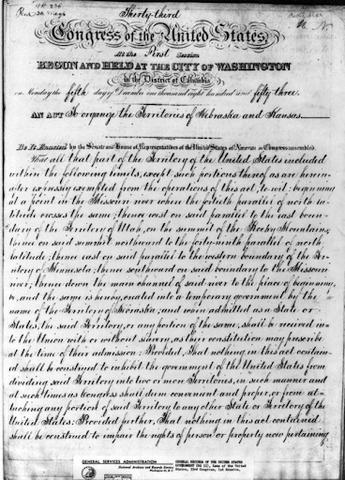 Thirty-third
Congress of the United States
At the First Session
BEGUN AND HELD AT THE CITY OF WASHINGTON
in the District of Columbia
on Monday the fifth day of December one thousand eight hundred and fifty three.
AN ACT To organize the Territories of Nebraska and Kansas.
Be it Enacted by the Senate and House of Representatives of the United States of America in Congress assembled,
That all that part of the Territory of the United States included
within the following limits, except such portions thereof as are herein-
after expressly exempted from the operations of this act, to wit: beginning
at a point in the Missouri river where the fortieth parallel of north la-
titude crosses the same; thence west on said parallel to the east boun-
dary of the Territory of Utah, on the summit of the Rocky Mountains;
thence on said summit northward to the forty-ninth parallel of north
latitude; thence east on said parallel to the western boundary of the Ter-
ritory of Minnesota; thence southward on said boundary to the Missouri
river; thence down the main channel of said river to the place of beginning,
be, and the same is hereby, created into a temporary government by the
name of the Territory of Nebraska; and when admitted as a State or
States, the said Territory, or any portion of the same, shall be received in-
to the Union with or without slavery, as their constitution may prescribe
at the time of their admission: Provided, That nothing in this act contain-
ed shall be construed to inhibit the government of the United States from
dividing said Territory into two or more Territories, in such manner and
at such times as Congress shall deem convenient and proper, or from at-
taching any portion of said Territory to any other State or Territory of the
United States: Provided further, That nothing in this act contained
shall be construed to impair the rights of person or property now pertaining
GENERAL SERVICES ADMINISTRATION
National Archives and Records Service
GENERAL RECORDS OF THE UNITED STATES
GOVERNMENT (RG 11), Laws of the United
States, 33rd Congress, 1st Session.